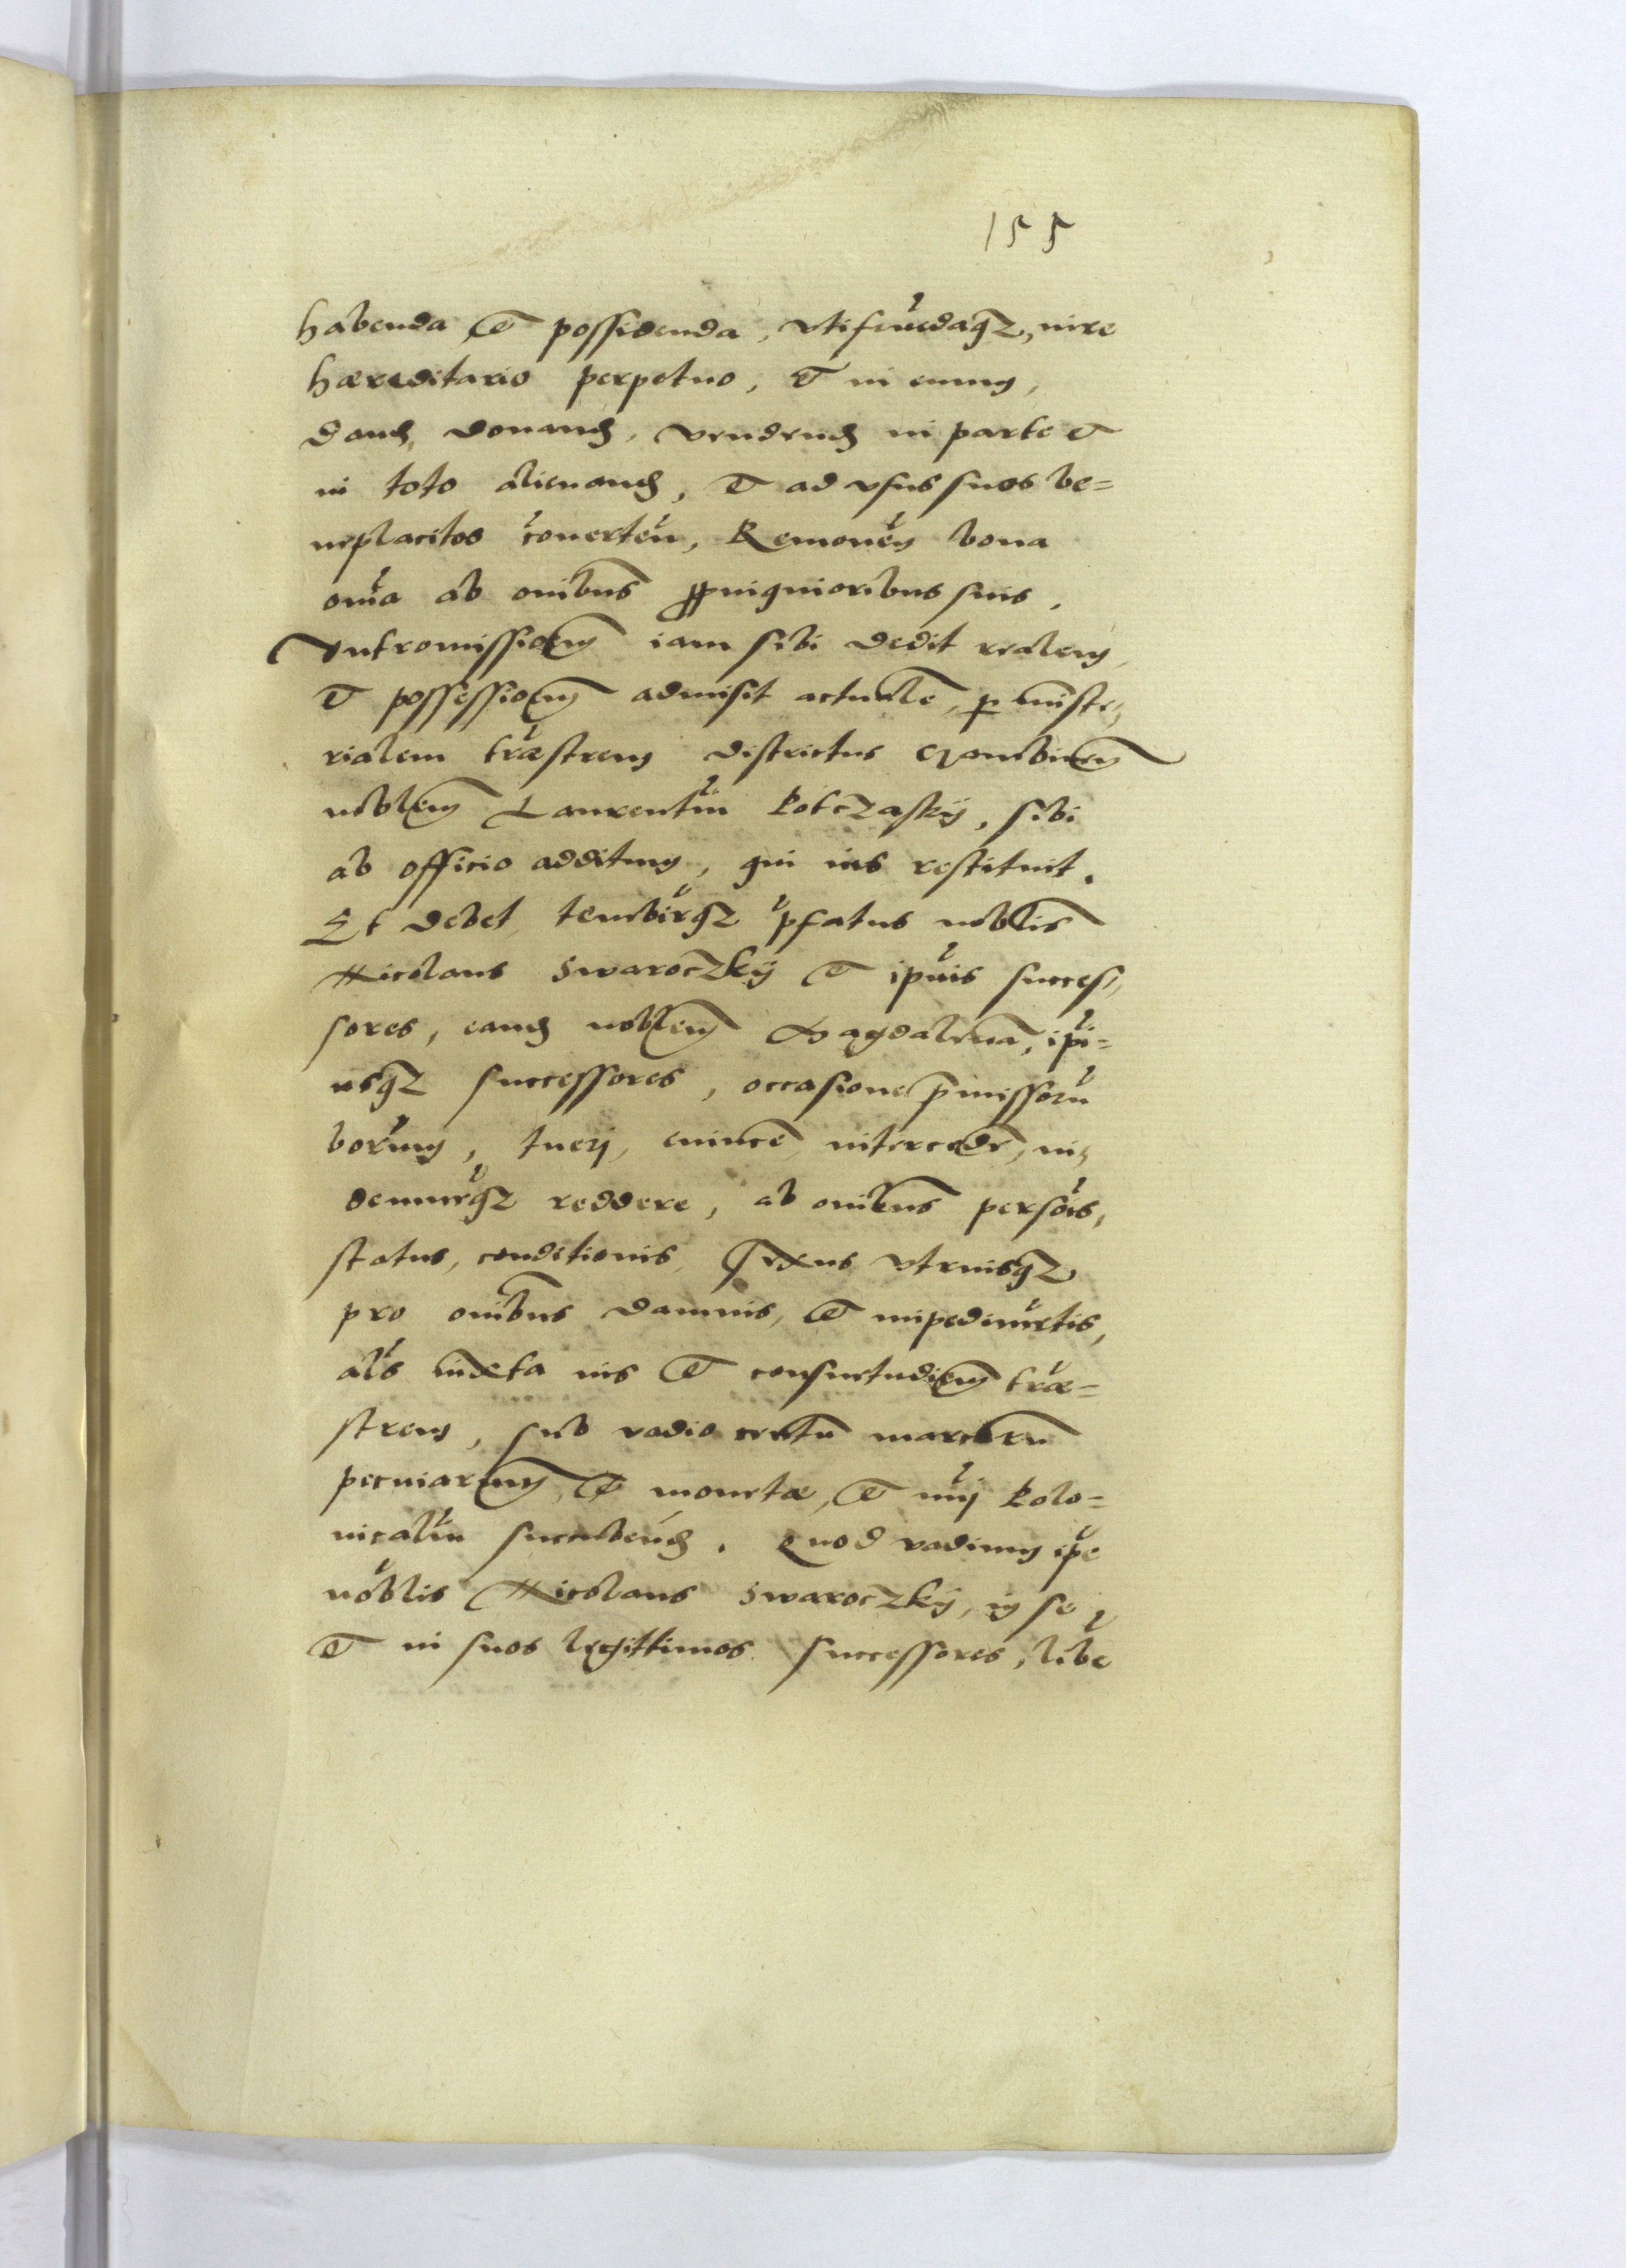 155
habenda et possidenda, vtifruēdaqȝ, iure
hæreditario perpetuo, et in euum,
dand, donand, vendend in parte et
in toto alienand, et ad vsus suos be=
neplacitos cōuertēn, Remouēn bona
oīa ab oībus ppinquioribus suis,
Intromissioēm iam sibi dedit realem,
et possessioēm admisit actualē, p ministe,
rialem træstrem districtus
noblem Laurentiū Kotczasky, sibi
ab officio additum, qui ius restituit.
Et debet, tenebirqȝ pfatus noblis
Nicolaus Swaroczky et ipius succes,
sores, eand noblem Magdalenā, ipi=
usqȝ successores, occasione pmissorū
borum, tuerj, euincē, intercedē, in,
demnēqȝ reddere, ab oībus persōis,
status, conditionis, sexus vtriusqȝ
pro oībus damnis, et impedimētis,
als iuxta ius et consuetudiēm træ=
strem, sub vadio centū marcarū
pecuniarum, et monetæ, et nuī polo=
nicaliū succubend. Quod vadium ipe
noblis Nicolaus Swaroczky, in se
et in suos legittimos successores, libe